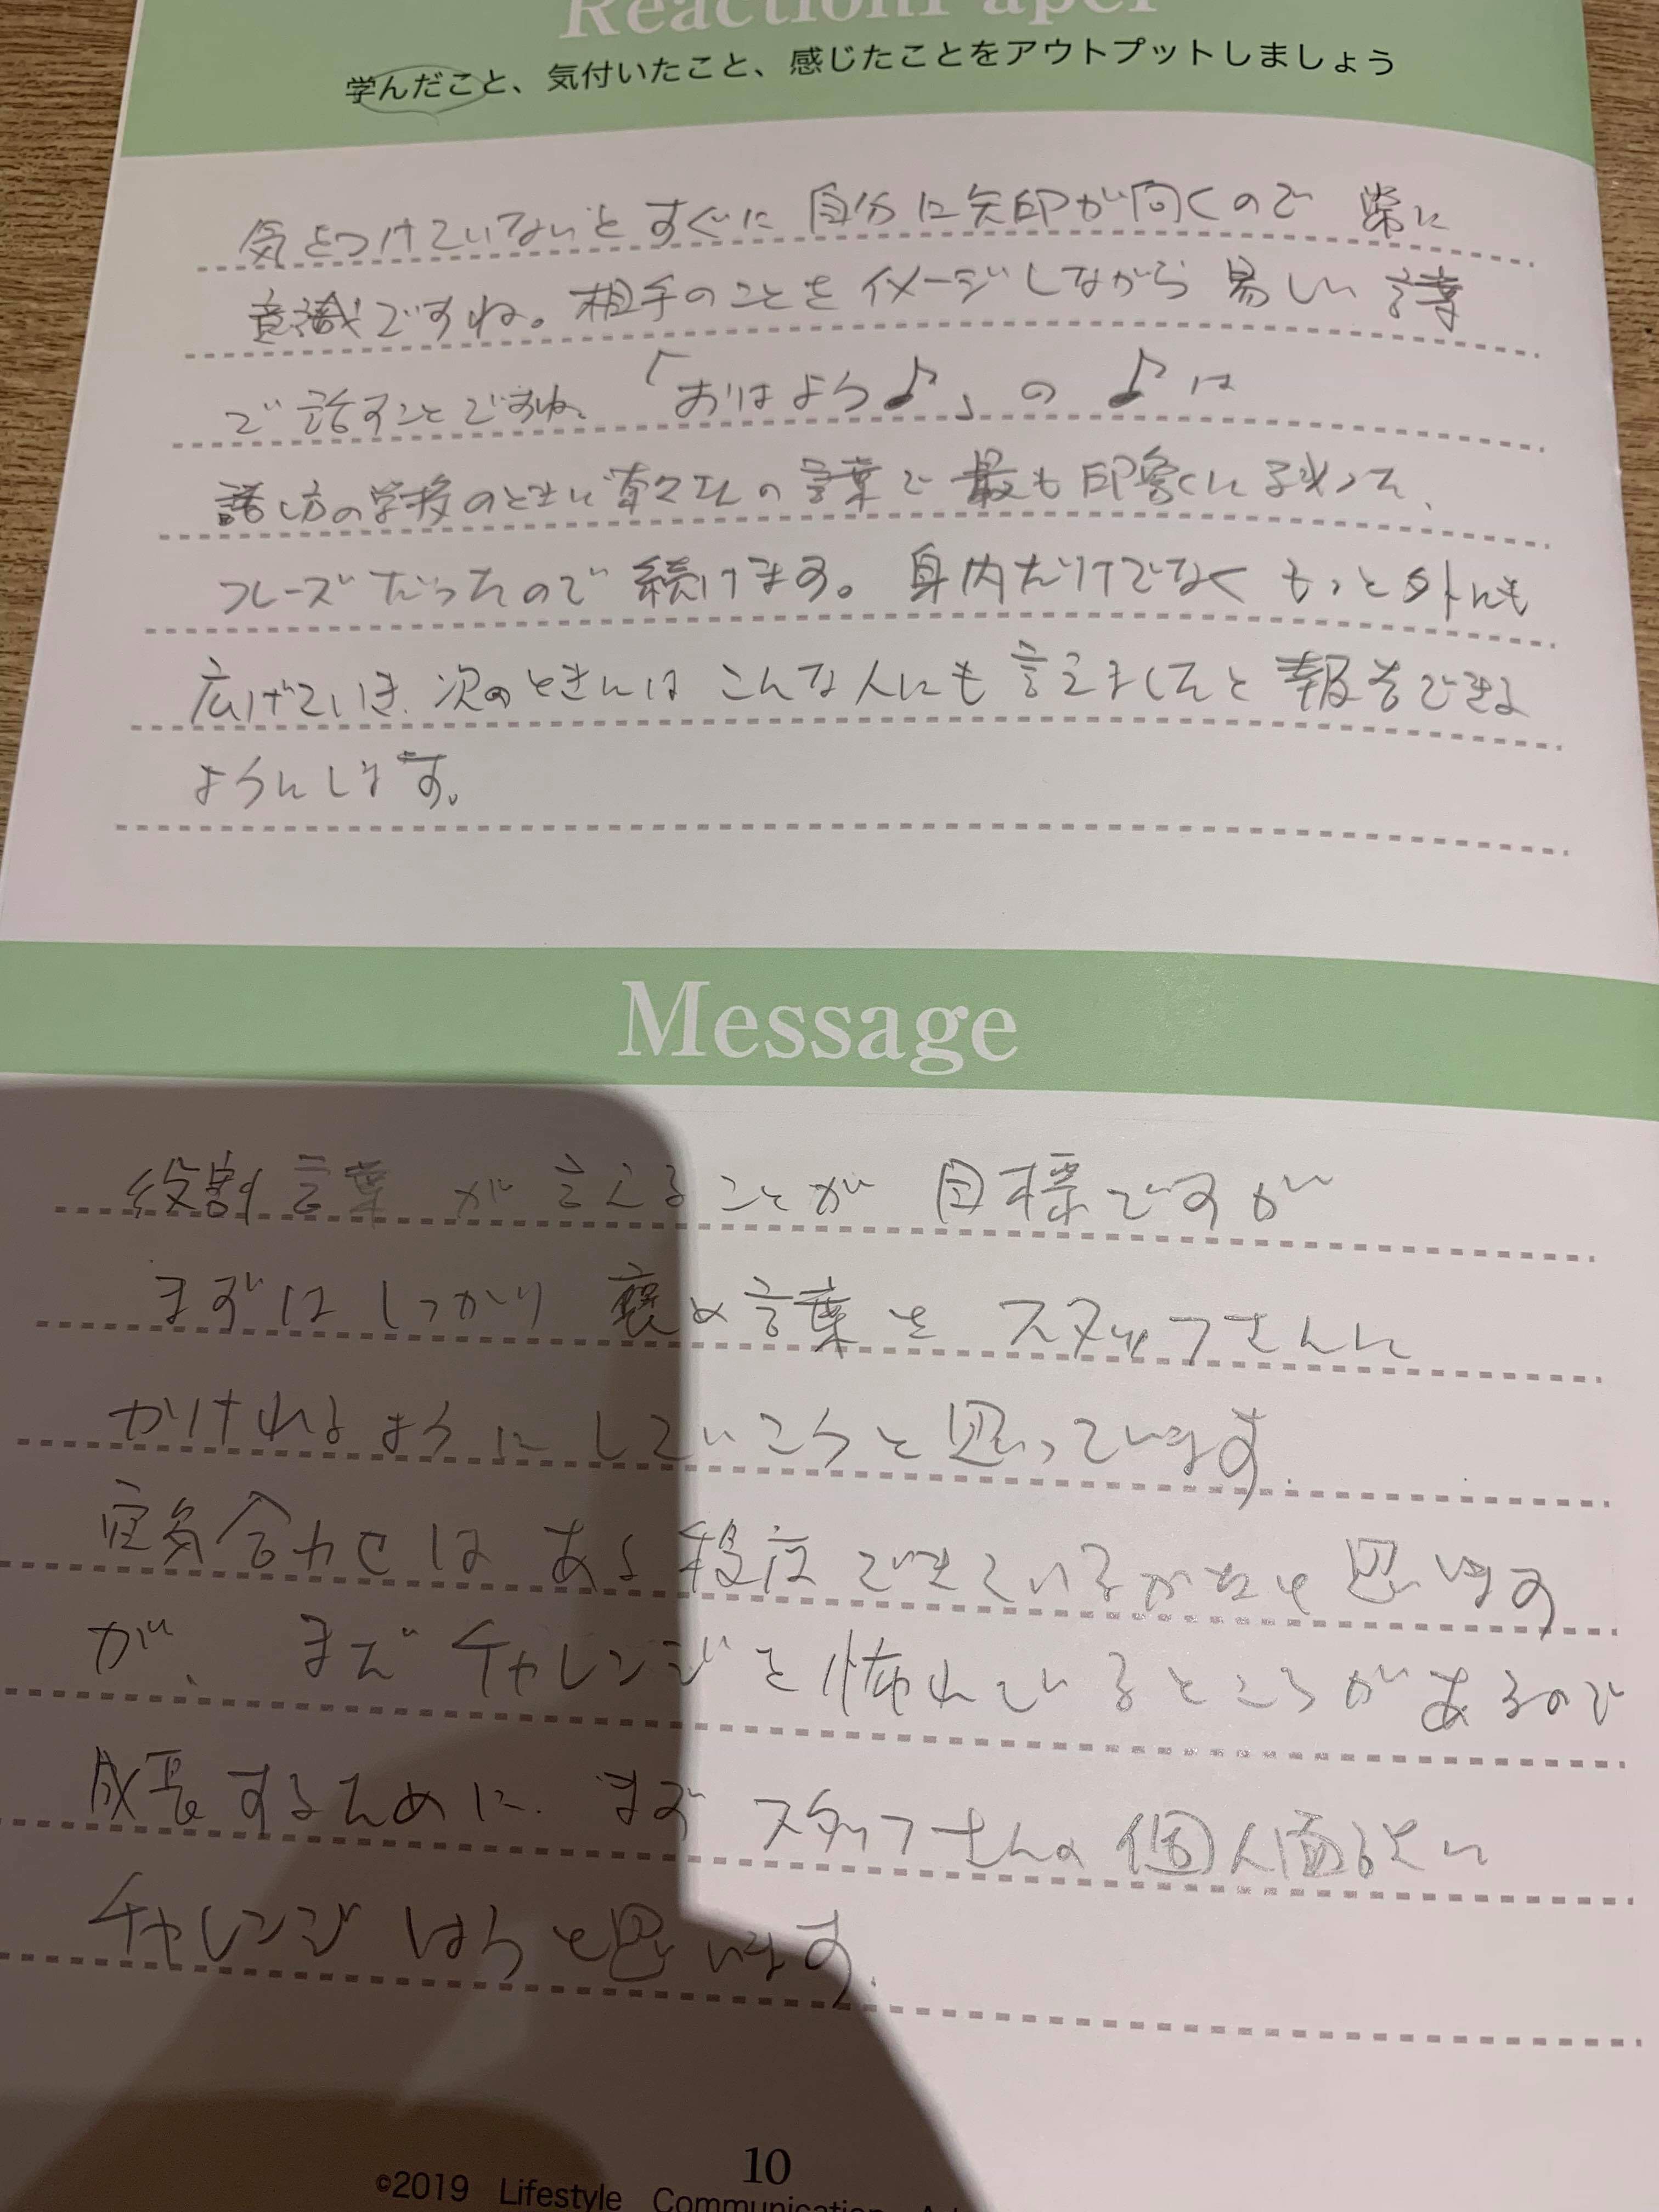 ReactionPaper
学んだこと、気付いたこと、感じたことをアウトプットしましょう
気をつけていないとすぐに自分に矢印が向くので 常に
意識ですね。相手のことをイメージしながら 易しい 言葉
で話すことですね。「おはよう♪」の ♪は
話し方の学校のときに の言葉で最も印象に残った
フレーズだったので続けます。身内だけでなくもっと外にも
広げていき、次のときにはこんな人にも言えましたと報告できる
ようにします。
Message
役割言葉が言えることが目標ですが
まずはしっかり褒め言葉をスタッフさんに
かけれるようにしていこうと思っています。
空気合わせはある程度できているかなと思います
が、まだチャレンジを怖れているところがあるので
成長するために、まずスタッフさんの個人面談に
チャレンジしようと思います。
10
©2019 Lifestyle Communication